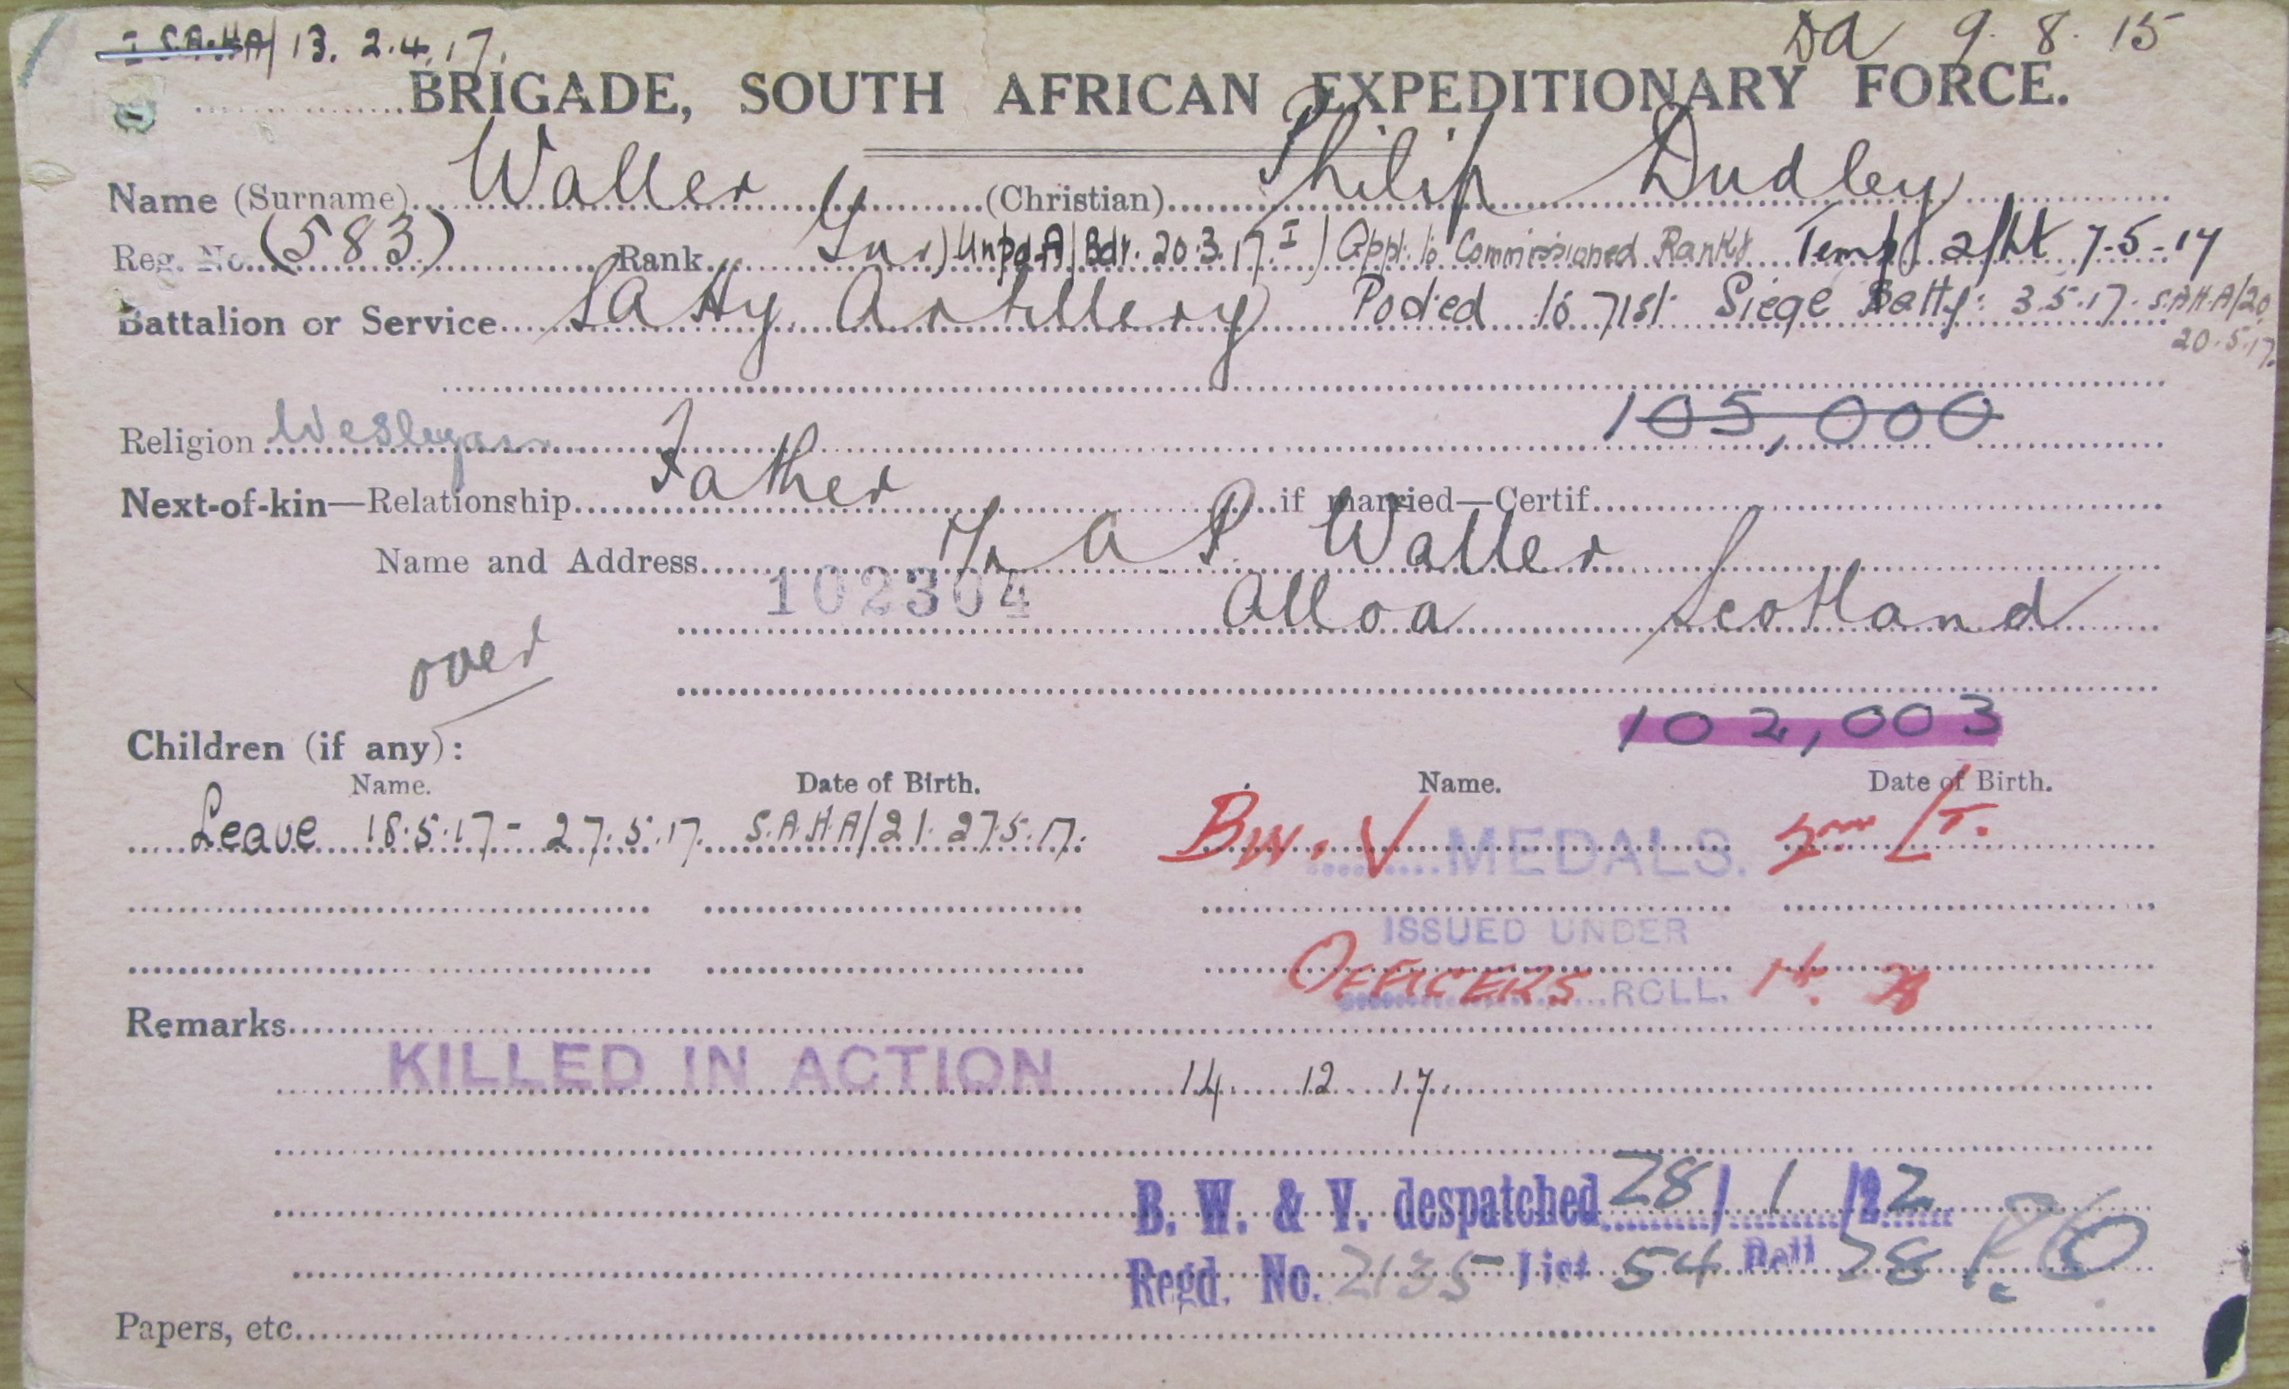 I S.A.H.A/ 13. 2.4.17. DA 9. 8. 15
BRIGADE, SOUTH AFRICAN EXPEDITIONARY FORCE.
Name (Surname) Waller (Christian) Philip Dudley
Reg. No. (583) Rank Gnr) Unpd. A/Bdr. 20.3.17. I) Appt. to Commissioned Rank Temp 2/Lt 7-5-17
Battalion or Service SA Hy Artillery Posted to 71st Siege Batty: 3.5.17. S.A.H.A/20
20.5.17.
Religion Wesleyan 105,000
Next-of-kin—Relationship Father if married—Certif.
Name and Address A P. Waller
102304 Alloa Scotland
over
102,003
Children (if any):
Name. Date of Birth. Name. Date of Birth.
Leave 18.5.17- 27.5.17. S.A.H.A/21. 27.5.17. B.W. V MEDALS. 2nd LT.
ISSUED UNDER
OFFICERS ROLL.
Remarks
KILLED IN ACTION 14. 12. 17.
B. W. & V. despatched 28/1/22
Regd. No. 2135 List 54 Roll 28
Papers, etc.